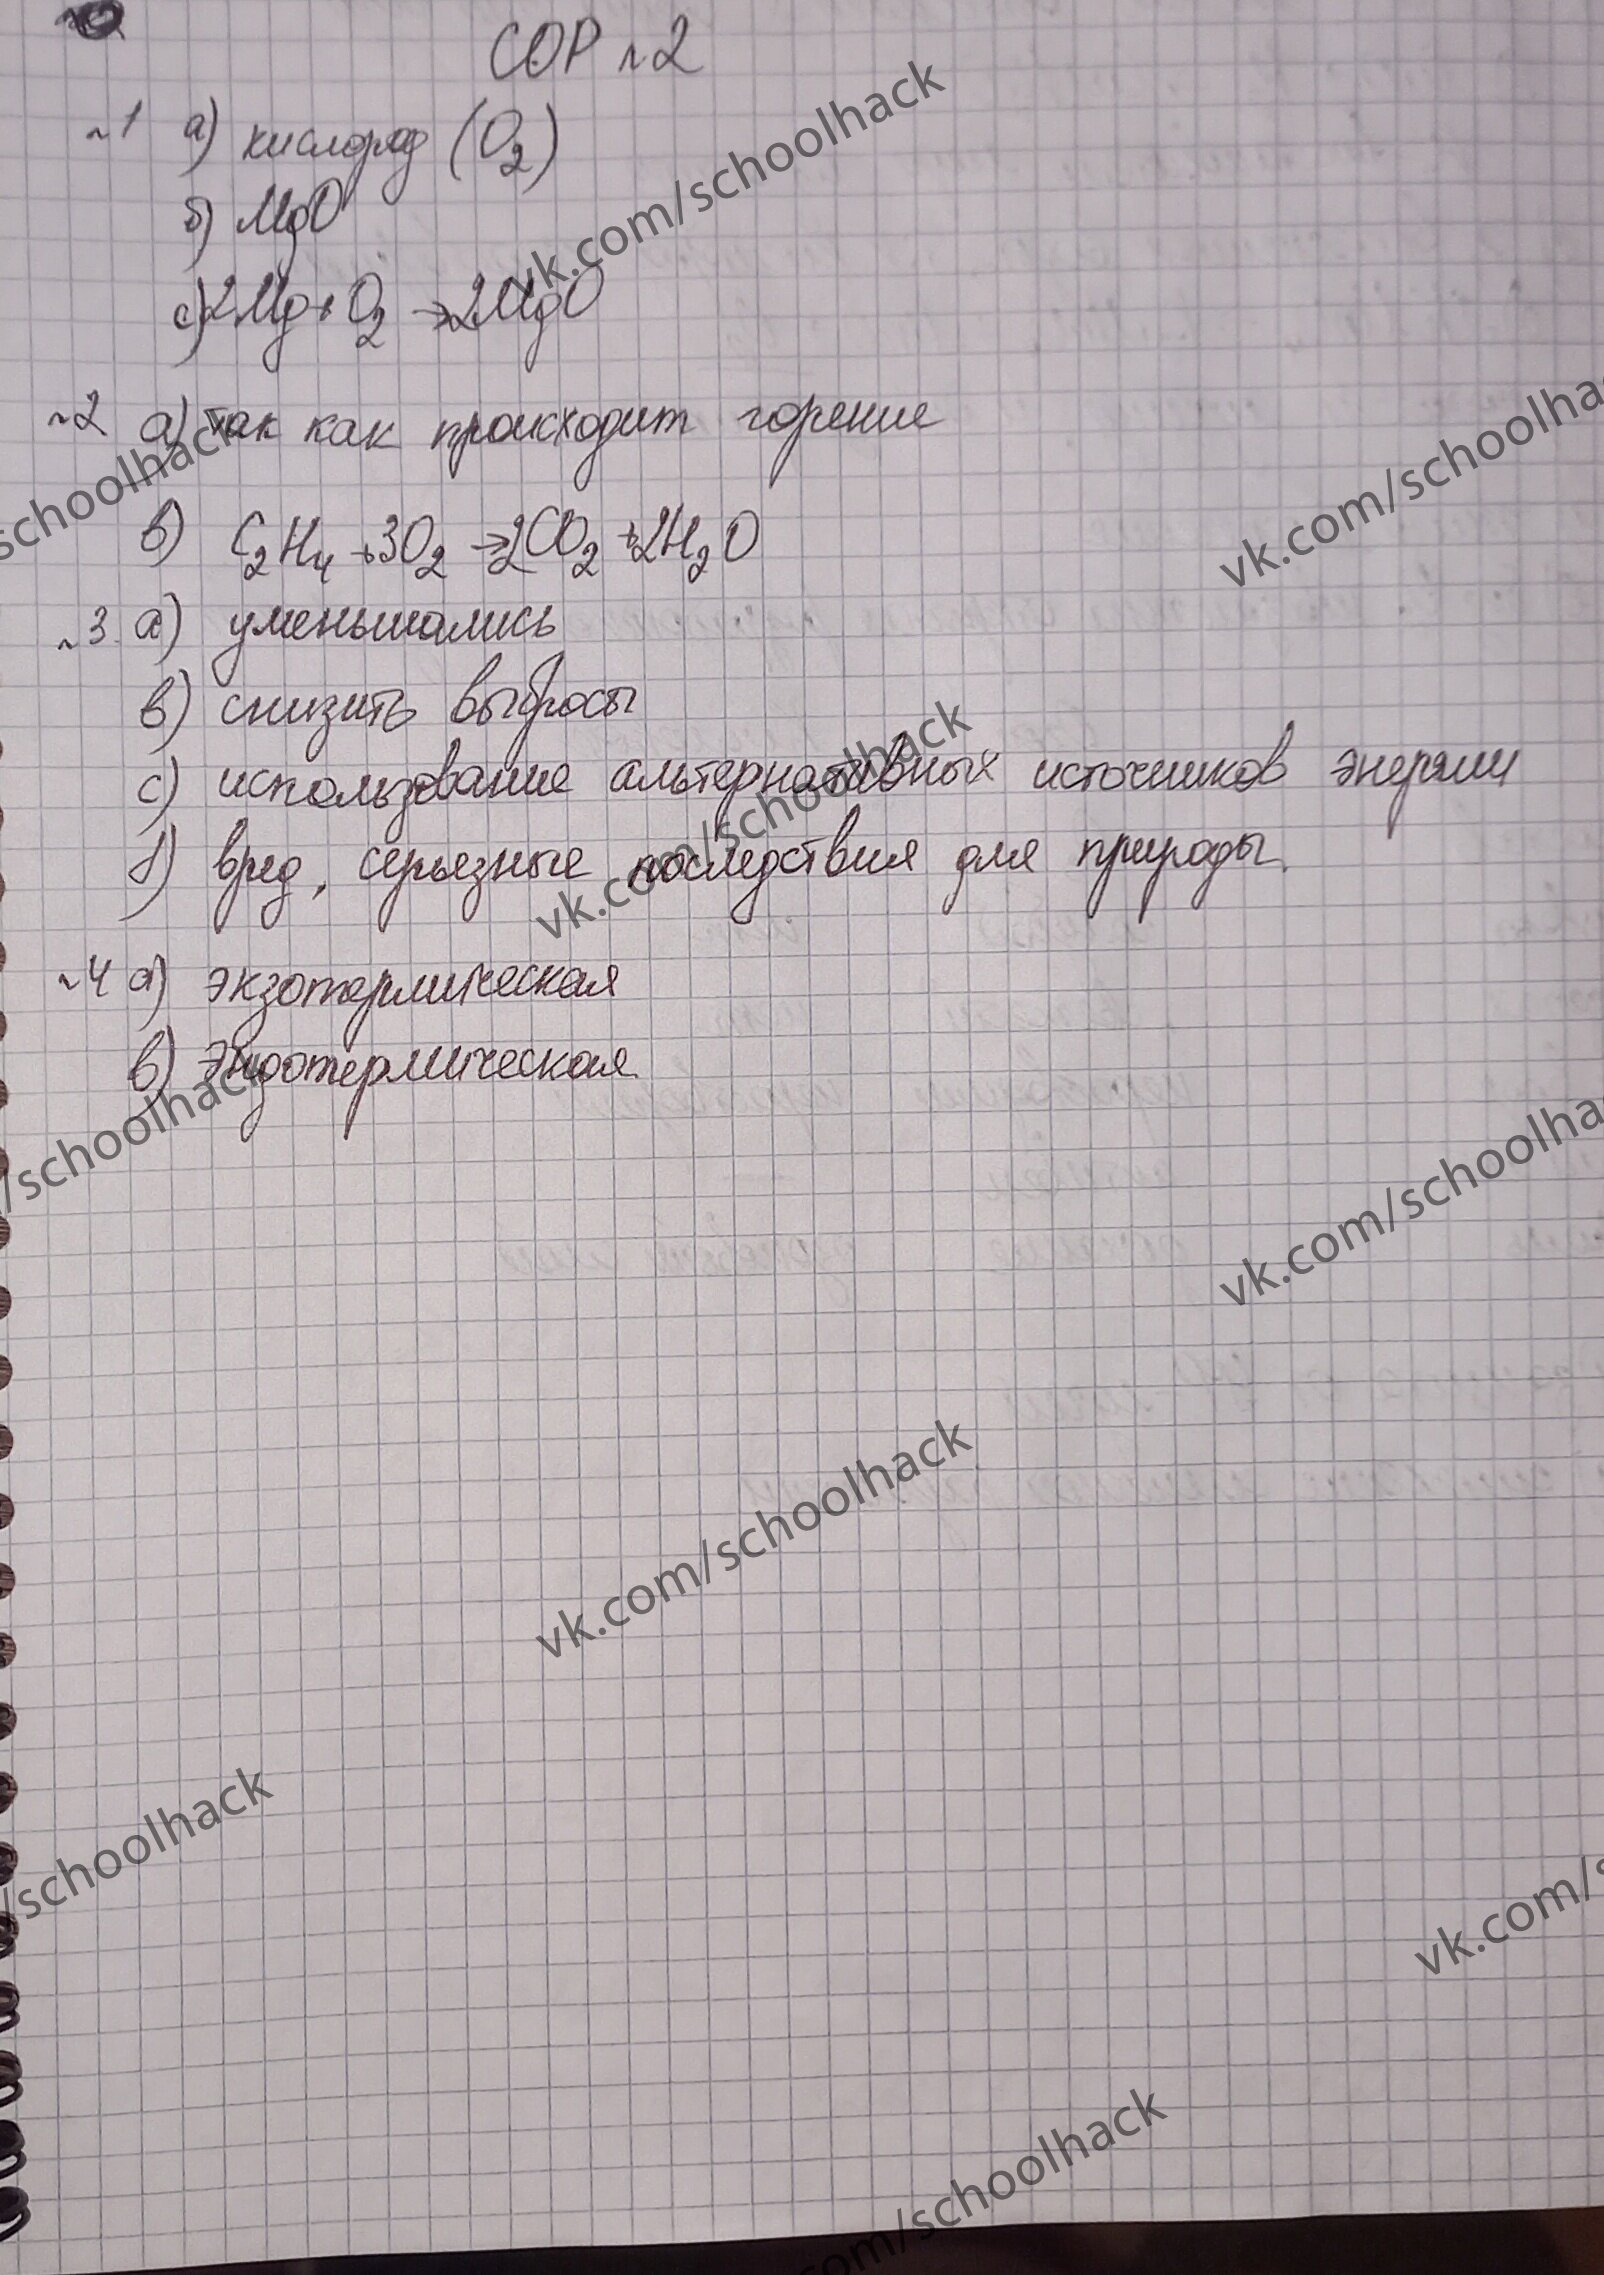 СОР №2
№1 а) кислород (O2)
б) MgO
с) 2Mg + O2 → 2MgO
№2 а) так как происходит горение
в) C2H4 + 3O2 → 2CO2 + 2H2O
№3. а) уменьшались
в) снизить выбросы
с) использование альтернативных источников энергии
б) вред, серьезные последствия для природы.
№4 а) экзотермическая
в) Эндотермическая
vk.com/schoolhack
schoolhack
vk.com/schoolhack
vk.com/schoolhack
/schoolhack
vk.com/schoolha
vk.com/schoolhack
/schoolhack
vk.com/s
com/schoolhack